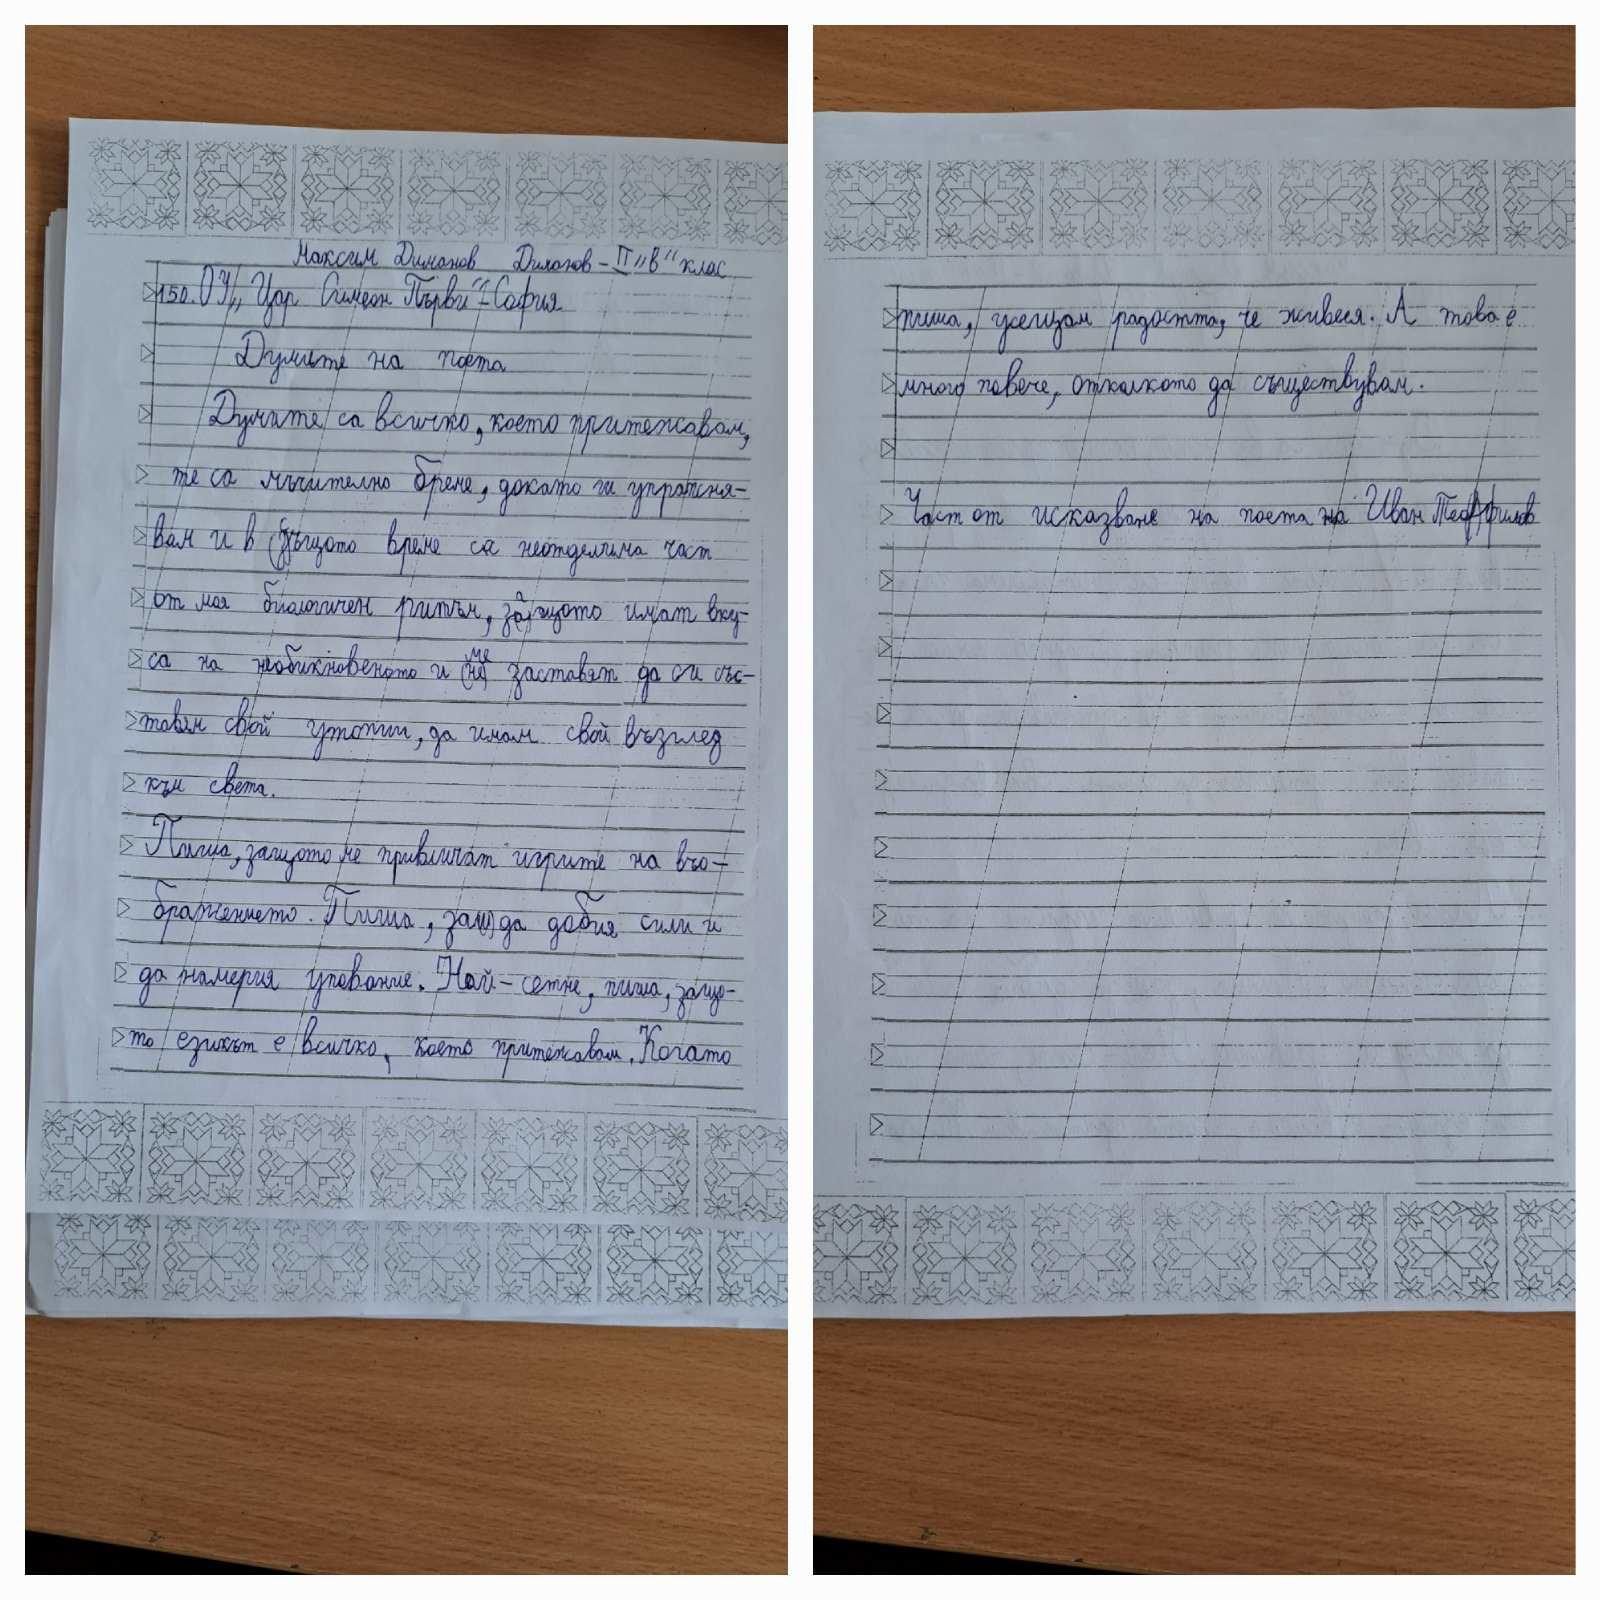 Максим Диманов Диманов - II "в" клас
150. ОУ „Цар Симеон Първи“ - София
Думите на поета
Думите са всичко, което притежавам,
те са мъчително бреме, докато ги упражня-
вам и в същото време са неотделима част
от моя биологичен ритъм, защото имат вку-
са на необикновеното и (не) ме заставят да си със-
тавям свой утопии, да имам свой възглед
към света.
Пиша, защото ме привличат игрите на въо-
бражението. Пиша, за(щ) да добия сили и
да намеря упование. Най-сетне, пиша, защо-
то езикът е всичко, което притежавам. Когато
пиша, усещам радостта, че живея. А това е
много повече, отколкото да съществувам.
Част от исказване на поета на Иван Теофилов